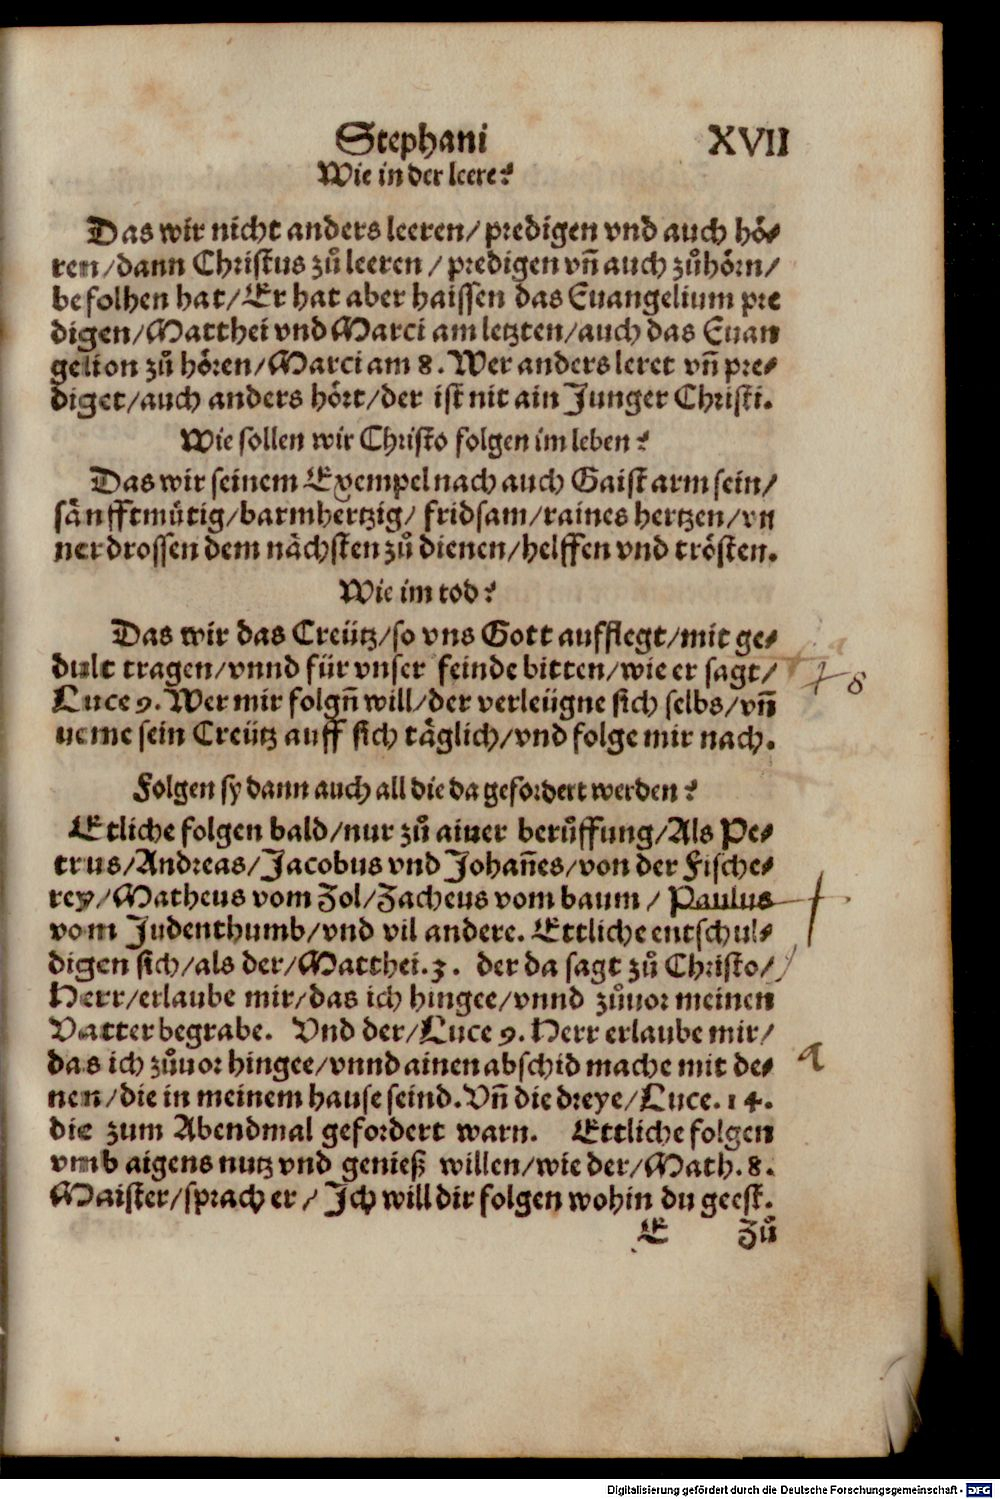 Stephani XVII
Wie in der leere?
Das wir nicht anders leeren/ predigen vnd auch hö⸗
ren/dann Christus zů leeren / predigen vñ auch zůhörn/
befolhen hat/Er hat aber haissen das Euangelium pre
digen/Matthei vnd Marci am letzten/auch das Euan
gelion zů hören/Marci am 8. Wer anders leret vñ pre⸗
diget/auch anders hört/der ist nit ain Junger Christi.
Wie sollen wir Christo folgen im leben?
Das wir seinem Exempel nach auch Gaist arm sein/
sänfftmütig/barmhertzig/ fridsam/raines hertzen/vn
uerdrossen dem nächsten zů dienen/helffen vnd trösten.
Wie im tod?
Das wir das Creütz/so vns Gott aufflegt/mit ge⸗
dult tragen/vnnd für vnser feinde bitten/wie er sagt/
Luce 9. Wer mir folgñ will/der verleügne sich selbs/vñ
neme sein Creütz auff sich täglich/vnd folge mir nach.
Folgen sy dann auch all die da gefordert werden?
Etliche folgen bald/nur zů ainer berůffung/Als Pe⸗
trus/Andreas/Jacobus vnd Johañes/von der Fische⸗
rey/Matheus vom Zol/Zacheus vom baum / Paulus
vom Judenthumb/vnd vil andere. Ettliche entschul⸗
digen sich/als der/Matthei.z. der da sagt zů Christo/
Herr/erlaube mir/das ich hingee/vnnd zůuor meinen
Vatter begrabe. Vnd der/Luce 9. Herr erlaube mir/
das ich zůuor hingee/vnnd ainen abschid mache mit de⸗
nen/die in meinem hause seind. Vñ die dreye/Luce. 14.
die zum Abendmal gefordert warn. Ettliche folgen
vmb aigens nutz vnd genieß willen/wie der/Math. 8.
Maister/sprach er/ Ich will dir folgen wohin du geest.
E Zů
8
Digitalisierung gefördert durch die Deutsche Forschungsgemeinschaft - DFG